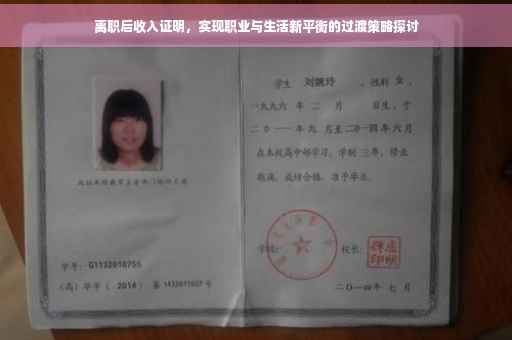 离职后收入证明，实现职业与生活新平衡的过渡策略探讨
学生 刘婉玲 ，性别 女 ，
一九九六 年 二 月 日生，于
二〇一一 年 九 月至二〇一四年 六 月
在本校高中部学习，学制 三年，修业
期满，成绩合格，准予毕业。
学校： 校长：
学号：G1132010755
（高）毕字（ 2014 ）第 1432011027 号
二〇一四年 七 月